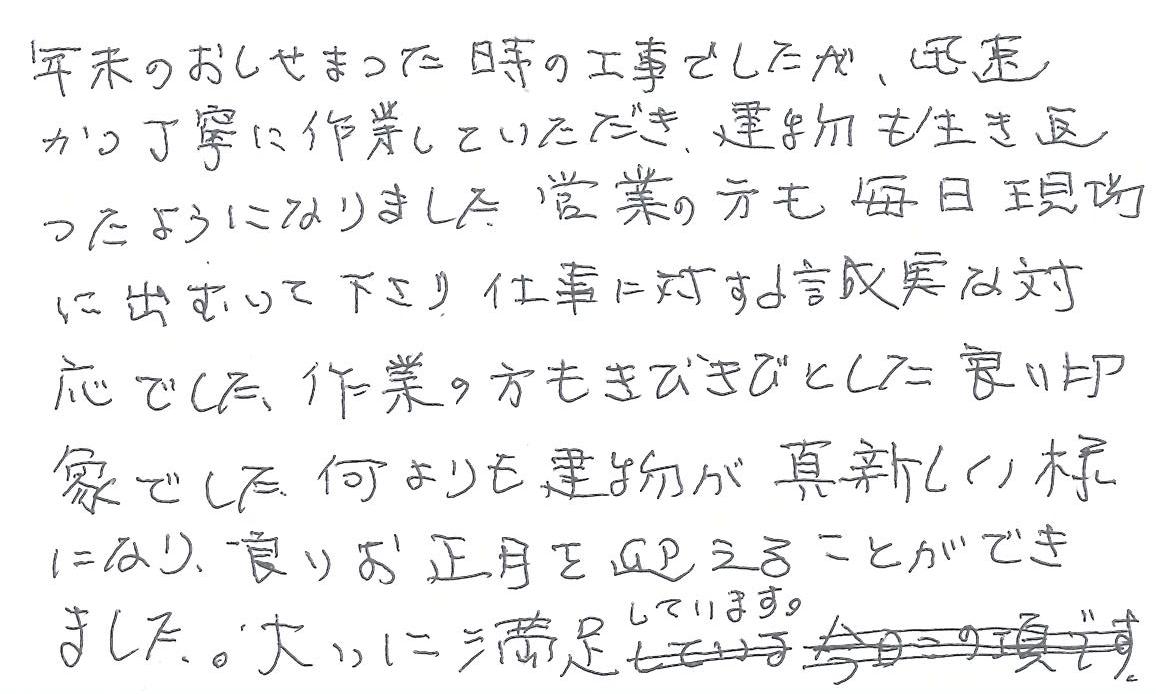 年末のおしせまった時の工事でしたが、迅速
かつ丁寧に作業していただき、建物も生き返
ったようになりました。営業の方も毎日現場
に出むいて下さり仕事に対する誠実な対
応でした、作業の方もきびきびとした良い印
象でした。何よりも建物が真新しい様
になり、良いお正月を迎えることができ
ました。大いに満足しています。
している 今日この頃です。